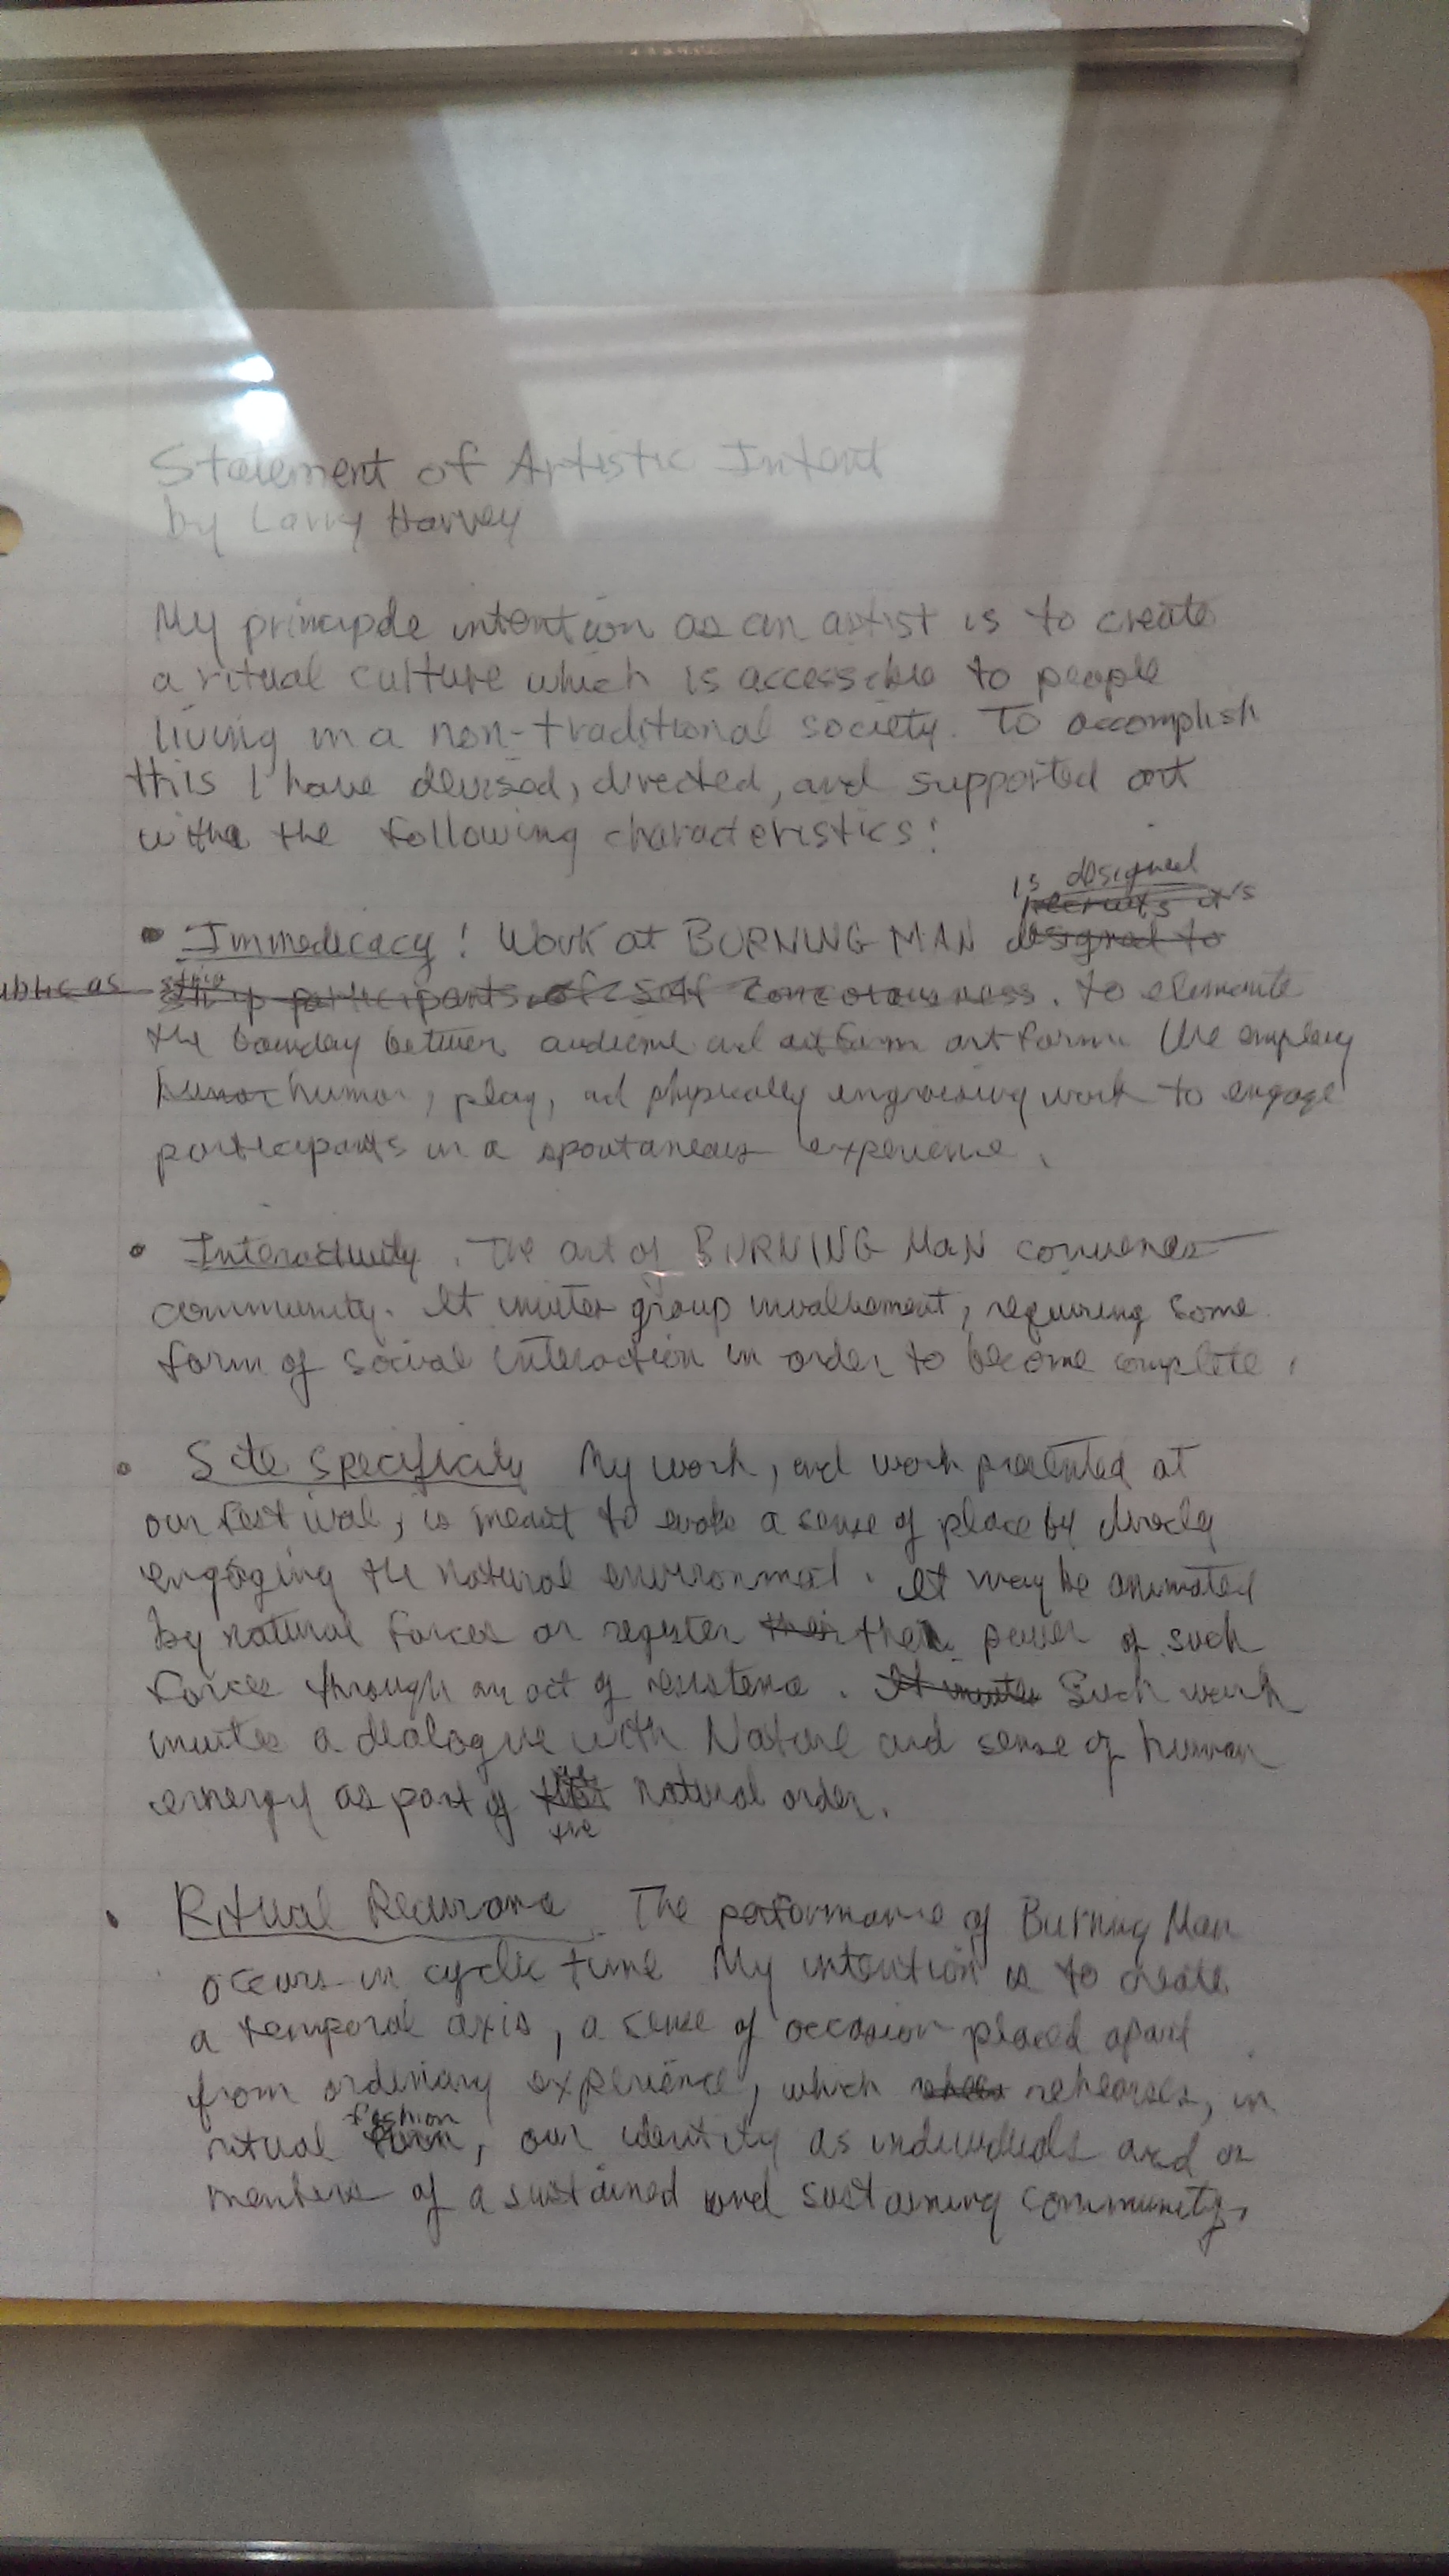 Statement of Artistic Intent
by Larry Harvey
My principle intention as an artist is to create
a ritual culture which is accessible to people
living in a non-traditional society. To accomplish
this I have devised, directed, and supported art
with the following characteristics:
is designed
recruits it's
• Immedicacy! Work at BURNING MAN designed to
ublic as strip participants of self concsiousness. to elimante
the bounday between audience and art form art form. We employ
humor humor, play, and physically engrossing work to engage
participants in a spontaneous experience.
• Interactivity. The art of BURNING MAN convenes
community. It invites group involvement, requiring some
form of social interaction in order to become complete.
• Site specificity My work, and work presented at
our festival, is meant to evoke a sense of place by directly
engaging the natural environment. It may be animated
by natural forces or register their the power of such
forces through an act of resistence. It invites Such work
invites a dialogue with Nature and sense of human
energy as part of natural order.
the
• Ritual Recurance. The performance of Burning Man
occurs in cyclic time My intention is to create
a temporal axis, a sense of occasion placed apart
from ordinary experience, which rehearses, in
fashion
ritual form, our identity as individuals and as
members of a sustained and sustaining community.